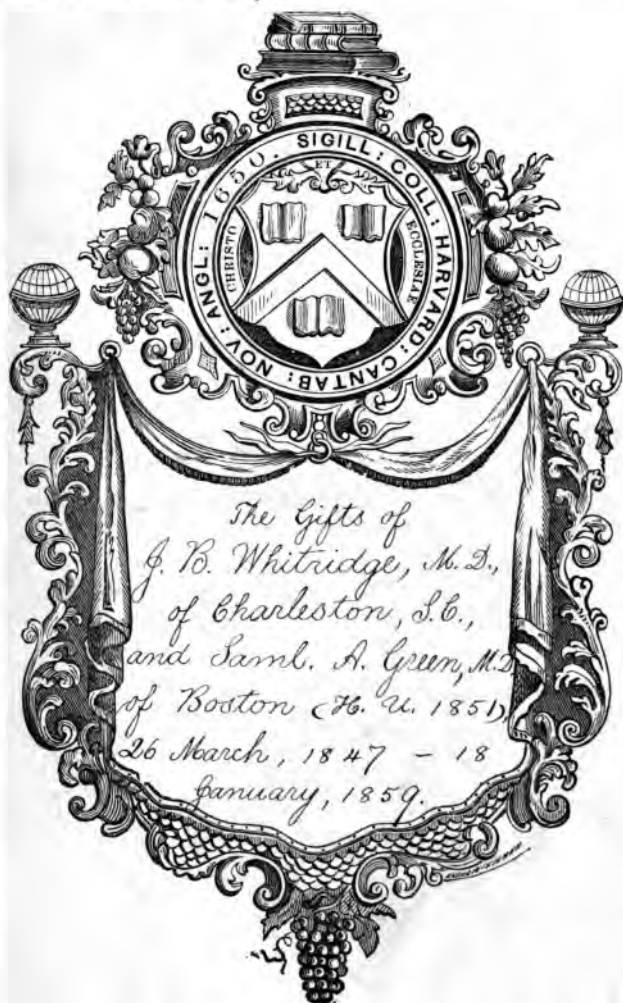 SIGILL: COLL: HARVARD: CANTAB: NOV: ANGL: 1650.
CHRISTO
ET
ECCLESIAE
The Gifts of
J. B. Whitridge, M. D.,
of Charleston, S. C.,
and Saml. A. Green, M. D.
of Boston (H. U. 1851),
26 March, 1847 – 18
January, 1859.